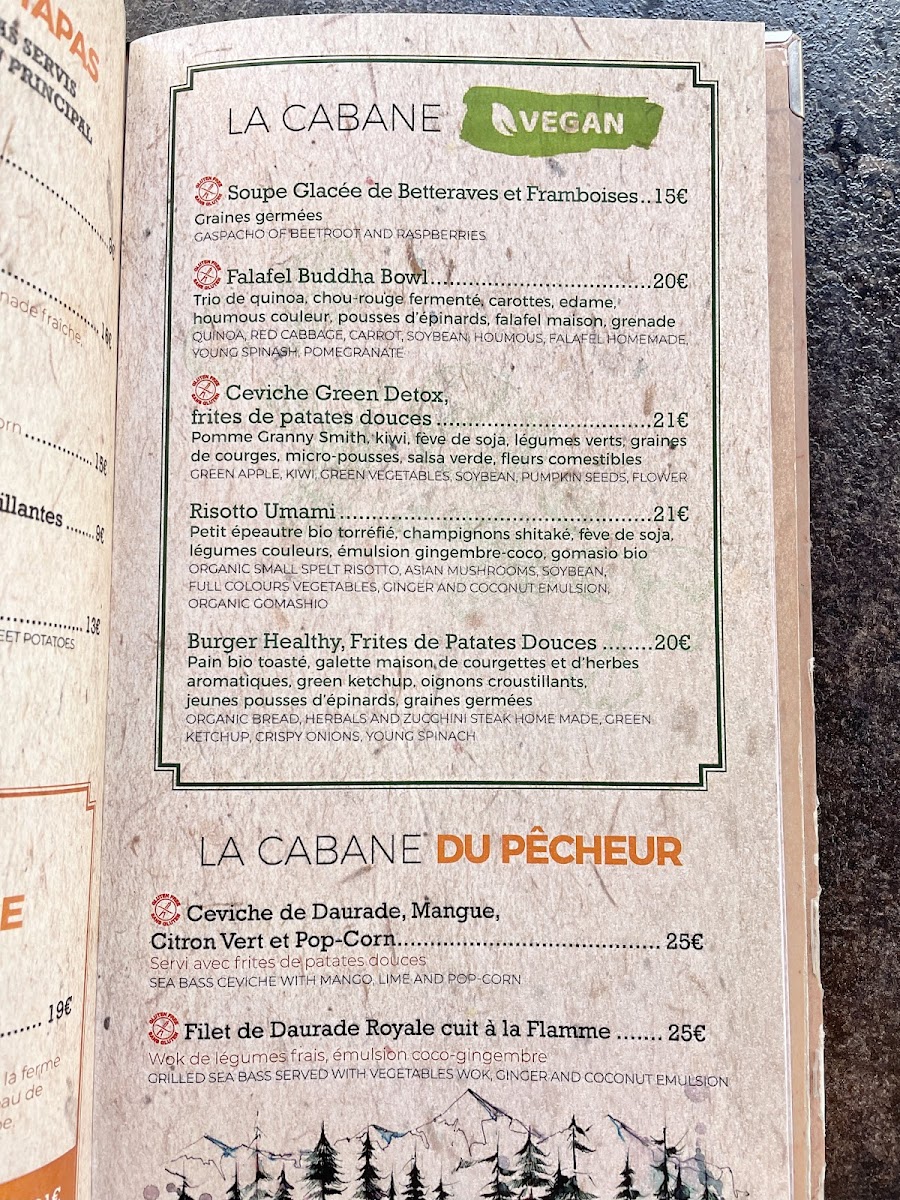 APAS
AS SERVIS
PRINCIPAL
nade fraîche,
orn
15€
illantes
9€
13€
EET POTATOES
E
19€
la ferme
au de
LA CABANE VEGAN
GLUTEN FREE
SANS GLUTEN
Soupe Glacée de Betteraves et Framboises..15€
Graines germées
GASPACHO OF BEETROOT AND RASPBERRIES
GLUTEN FREE
SANS GLUTEN
Falafel Buddha Bowl..............................20€
Trio de quinoa, chou-rouge fermenté, carottes, edame,
houmous couleur, pousses d'épinards, falafel maison, grenade
QUINOA, RED CABBAGE, CARROT, SOYBEAN, HOUMOUS, FALAFEL HOMEMADE,
YOUNG SPINASH, POMEGRANATE
GLUTEN FREE
SANS GLUTEN
Ceviche Green Detox,
frites de patates douces..............................21€
Pomme Granny Smith, kiwi, fève de soja, légumes verts, graines
de courges, micro-pousses, salsa verde, fleurs comestibles
GREEN APPLE, KIWI, GREEN VEGETABLES, SOYBEAN, PUMPKIN SEEDS, FLOWER
Risotto Umami..........................................21€
Petit épeautre bio torréfié, champignons shitaké, fève de soja,
légumes couleurs, émulsion gingembre-coco, gomasio bio
ORGANIC SMALL SPELT RISOTTO, ASIAN MUSHROOMS, SOYBEAN,
FULL COLOURS VEGETABLES, GINGER AND COCONUT EMULSION,
ORGANIC GOMASHIO
Burger Healthy, Frites de Patates Douces ........20€
Pain bio toasté, galette maison de courgettes et d'herbes
aromatiques, green ketchup, oignons croustillants,
jeunes pousses d'épinards, graines germées
ORGANIC BREAD, HERBALS AND ZUCCHINI STEAK HOME MADE, GREEN
KETCHUP, CRISPY ONIONS, YOUNG SPINACH
LA CABANE DU PÊCHEUR
GLUTEN FREE
SANS GLUTEN
Ceviche de Daurade, Mangue,
Citron Vert et Pop-Corn.................................... 25€
Servi avec frites de patates douces
SEA BASS CEVICHE WITH MANGO, LIME AND POP-CORN
GLUTEN FREE
SANS GLUTEN
Filet de Daurade Royale cuit à la Flamme ....... 25€
Wok de légumes frais, émulsion coco-gingembre
GRILLED SEA BASS SERVED WITH VEGETABLES WOK, GINGER AND COCONUT EMULSION